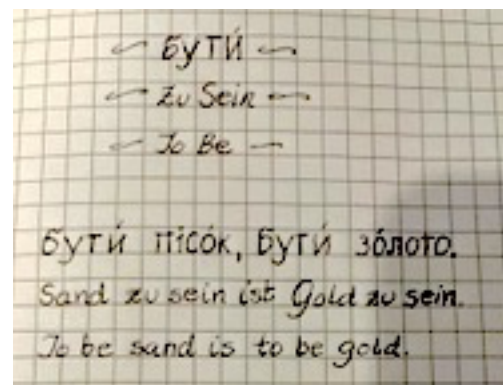 ~ БУТИ́ ~
~ Zu Sein ~
~ To Be ~
БУТИ́ ПІСО́К, БУТИ́ ЗО́ЛОТО.
Sand zu sein ist Gold zu sein.
To be sand is to be gold.